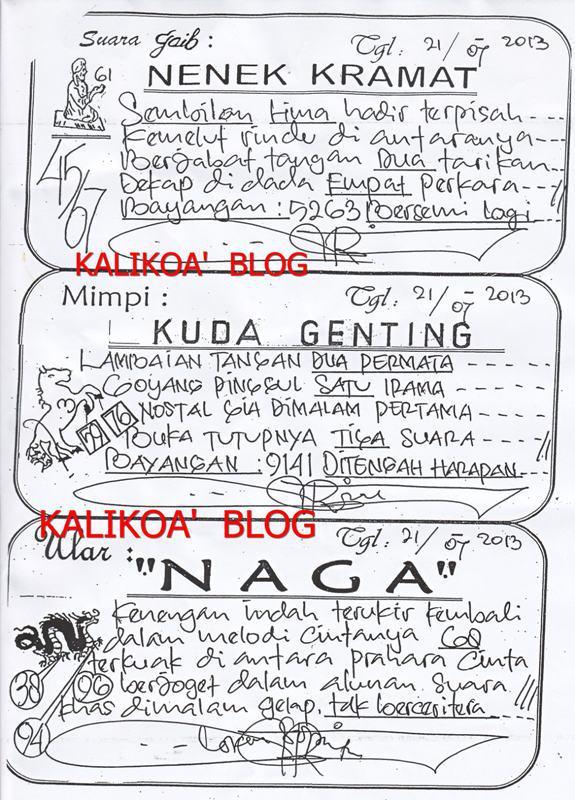 Suara Gaib :
Tgl : 21/07 2013
NENEK KRAMAT
61
Sembilan Lima hadir terpisah
Kemelut rindu di antaranya
Berjabat tangan Dua tarikan
Dekap di dada Empat perkara
Bayangan : 5263 Bersemi lagi
45
67
KALIKOA' BLOG
Mimpi :
Tgl : 21/07 2013
KUDA GENTING
LAMBAIAN TANGAN DUA PERMATA
GOYANG PINGGUL SATU IRAMA
NOSTALGIA DIMALAM PERTAMA
BUKA TUTUPNYA TIGA SUARA
BAYANGAN : 9141 DITENGAH HARAPAN
79 76
KALIKOA' BLOG
Ular :
Tgl : 21/07 2013
"NAGA"
Kenengan indah terukir kembali
dalam melodi Cintanya
terkuak di antara prahara Cinta
berjoget dalam alunan Suara
khas dimalam gelap. tak berceritera
38 96
94